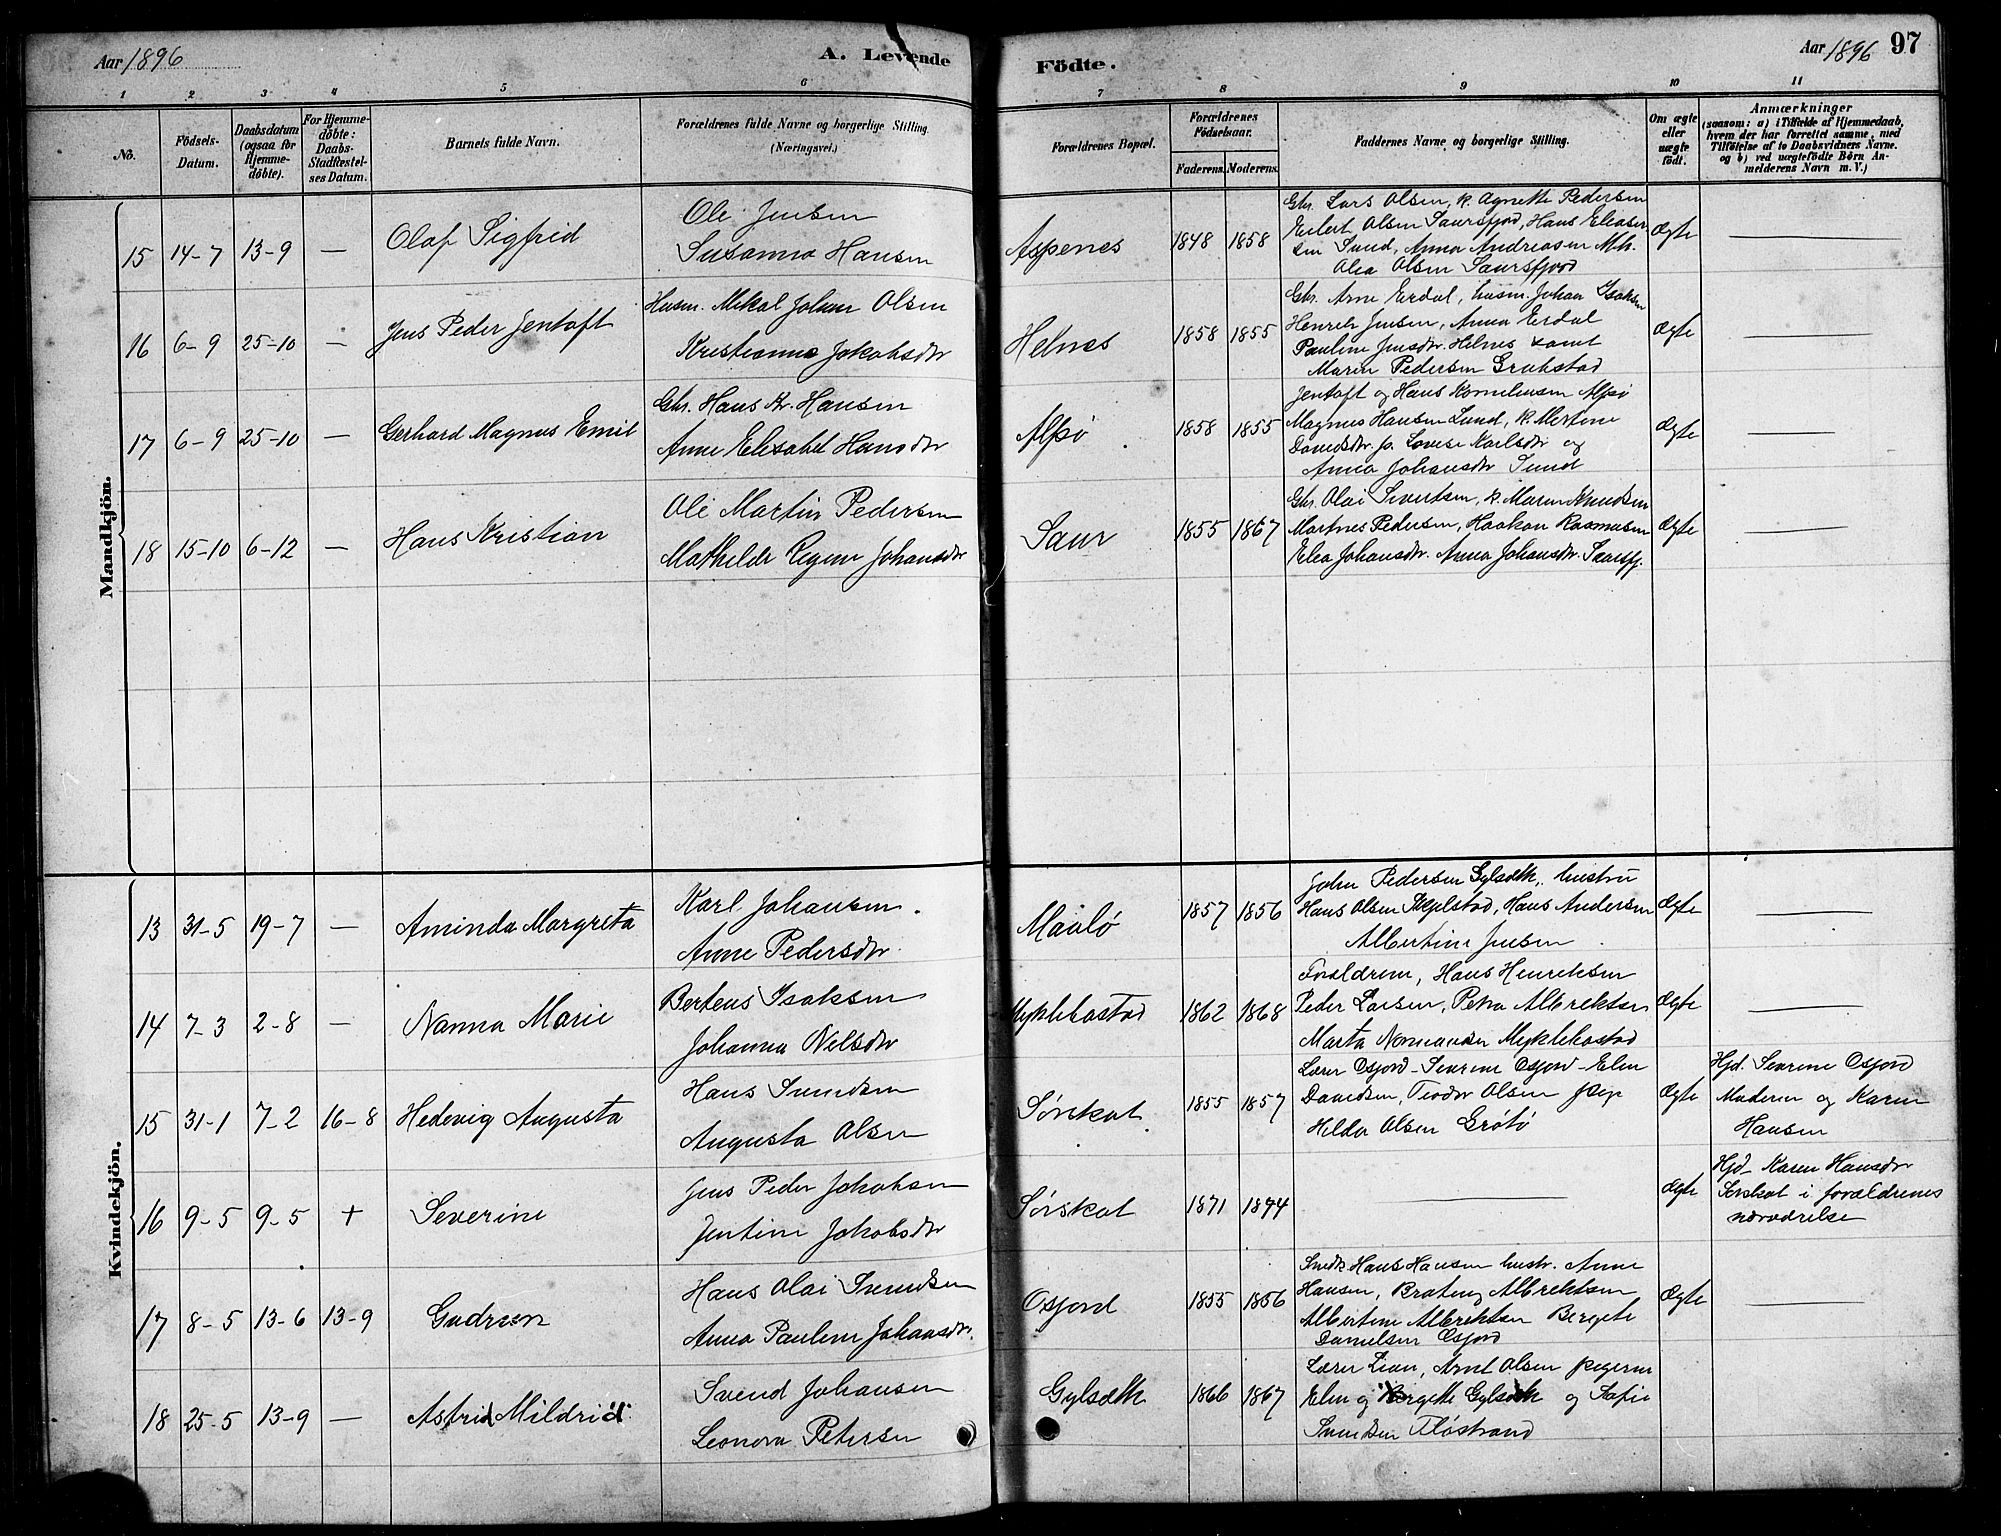 Aar 1896
A. Levende
Födte.
Aar 1896 97
1 2 3 4 5 6 7 8 9 10 11
No.
Födsels-
Datum.
Daabsdatum
(ogsaa for
Hjemme-
döbte).
For Hjemme-
döbte:
Daabs-
Stadfæstel-
ses Datum.
Barnets fulde Navn.
Forældrenes fulde Navne og borgerlige Stilling.
(Næringsvei.)
Forældrenes Bopæl.
Forældrenes
Födselsaar.
Faderens. Moderens.
Faddernes Navne og borgerlige Stilling.
Om ægte
eller
uægte
födt.
Anmærkninger
(saasom: a) i Tilfælde af Hjemmedaab,
hvem der har forrettet samme, med
Tilföielse af to Daabsvidners Navne.
og b) ved uægtefödte Börn An-
melderens Navn m. V.)
Mandkjön.
15 14-7 13-9 — Olaf Sigfrid
Ole Jensen
Susanna Hansen
Aspenes 1848 1858
Gbr. Lars Olsen, k. Agnette Pedersen
Eilert Olsen Saursfjord, Hans Elieser
sen Sund, Anna Andreasen
Olea Olsen Saursfjord
Ægte —
16 6-9 25-10 — Jens Peder Jentoft
Husm. Mikal Johan Olsen
Kristianna Jakobsdtr
Helnes 1858 1855
Gbr. Arne Eidal, husm. Johan Isaksen
Henrik Jensen, Anna Eidal
Pauline Jensdtr. Helnes samt
Maren Pedersen
Ægte —
17 6-9 25-10 — Gerhard Magnus Emil
Gbr. Hans Kr. Hansen
Anne Elisabet Hansdtr
Alpø 1858 1855
Jentoft og Hans Korneliussen Alpø
Magnus Hansen Lund, k. Mertine
Davidsdtr p. Lovise Karlsdtr og
Anna Johansdtr Sund
Ægte —
18 15-10 6-12 — Hans Kristian
Ole Martin Pedersen
Mathilde Johansdtr
Saur 1855 1867
Gbr. Olai Sivertsen, k. Maren Knudsen
Martnes Pedersen, Haakon Rasmusen
Elea Johansdtr. Anna Johansdtr.
Ægte —
Kvindekjön.
13 31-5 19-7 — Aminda Margreta
Karl Johansen.
Anne Pedersdtr.
Maulø 1857 1856
John Pedersen Gylseth, hustru
Hans Olsen, Hans Andersen
Albertine Jensen
Ægte —
14 7-3 2-8 — Nanna Marie
Berteus Isaksen
Johanna Nelsdtr
Myklebostad 1862 1868
Forældrene, Hans Henriksen
Peder Larsen, Petra Albrektsen
Marta Normansen Myklebostad
Ægte —
15 31-1 7-2 16-8 Hedevig Augusta
Hans Svendsen
Augusta Olsen
Sørskot 1855 1857
Lærer Osfjord - Severine Osfjord - Elen
Davidsen, Teodor Olsen pige
Hilda Olsen Grøtø
Ægte
Hjd. Severine Osfjord
Moderen og Karen
Hansen
16 9-5 9-5 + Severine
Jens Peder Jakobsen
Jentine Jakobsdtr
Sørskot 1871 1874 — Ægte
Hjd. Karen Hansdtr
Sørskot i forældrenes
nærværelse
17 8-5 13-6 13-9 Gudrun
Hans Olai Svendsen
Anna Pauline Johansdtr.
Osfjord 1855 1856
Smedk. Hans Hansen hustr. Anne
Hansen, Albrektsen
Albertine Albriktsen Bergete
Danielsen Osfjord
Ægte —
18 25-5 13-9 — Astrid Mildrid
Svend Johansen
Leonora Petersen
Gylseth 1866 1867
Lærer Lian, Arnt Olsen pigerne
Elen og Bergette Gylseth og Sofie
Svendsen Fløstrand